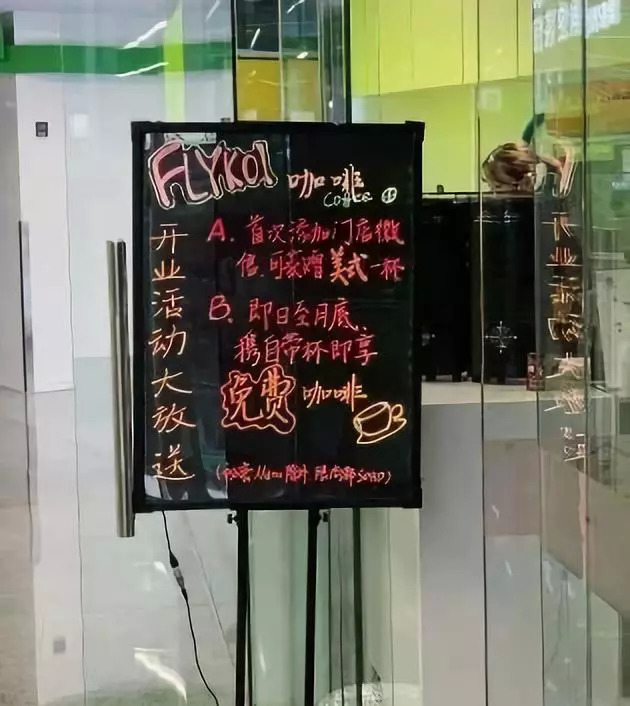 FLYKOI 咖啡
Coffee
开业活动大放送
A. 首次添加门店微
信.可获赠美式一杯
B. 即日至月底、
携自带杯即享
免费 咖啡